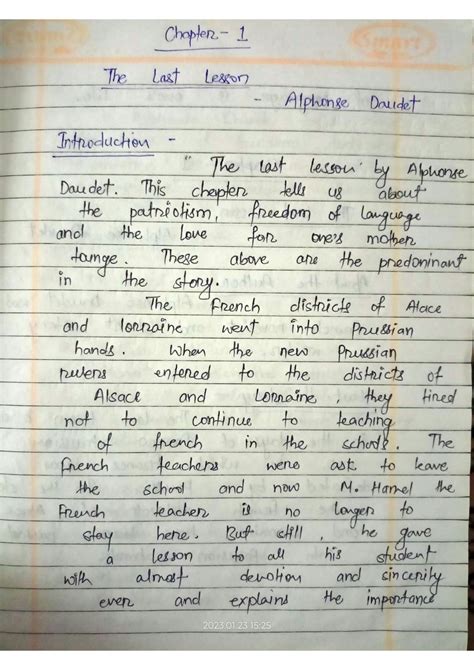 Smart
Chapter - 1
The Last Lesson
- Alphonse Daudet
Introduction -
" The last lesson by Alphonse
Daudet. This chepter tells us about
the patriotism, freedom of language
and the love for one's mother
tounge. These above are the predominant
in the story.
The French districts of Alace
and lorraine went into Prussian
hands. When the new Prussian
rulers entered to the districts of
Alsace and Lorraine, they tired
not to continue to teaching
of french in the schools. The
french teachers were ask to leave
the school and now M. Hamel the
French teacher is no longer to
stay here. But still, he gave
a lesson to all his student
with almost devotion and sincerity
ever and explains the importance
2023.01.23 15:25